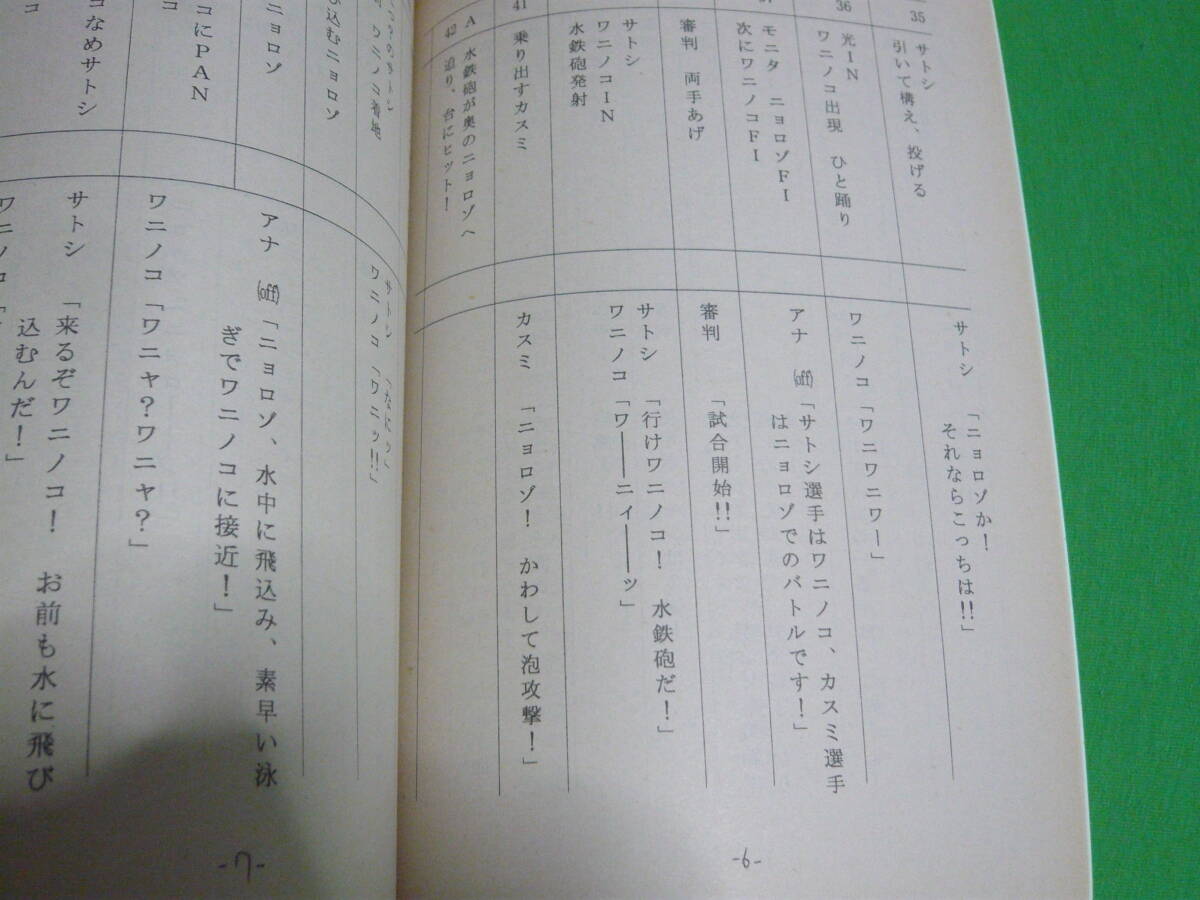 35
サトシ
引いて構え、投げる
サトシ
「ニョロゾか!
それならこっちは!!」
36
光IN
ワニノコ出現 ひと踊り
ワニノコ「ワニワニワー」
モニタ ニョロゾFI
次にワニノコFI
アナ (off)「サトシ選手はワニノコ、カスミ選手
はニョロゾでのバトルです!」
審判 両手あげ
審判 「試合開始!!」
サトシ
ワニノコIN
水鉄砲発射
サトシ 「行けワニノコ! 水鉄砲だ!」
ワニノコ「ワ――ニィ――ッ」
41
乗り出すカスミ
カスミ 「ニョロゾ! かわして泡攻撃!」
42 A
水鉄砲が奥のニョロゾへ
迫り、台にヒット!
-6-
ワニノコ着地
サトシ 「なにッ」
ワニノコ「ワニッ!!」
び込むニョロゾ
ニョロゾ
アナ (off)「ニョロゾ、水中に飛込み、素早い泳
ぎでワニノコに接近!」
コにPAN
コ
ワニノコ「ワニャ?ワニャ?」
コなめサトシ
サトシ 「来るぞワニノコ! お前も水に飛び
込むんだ!」
ワニノコ「
-7-